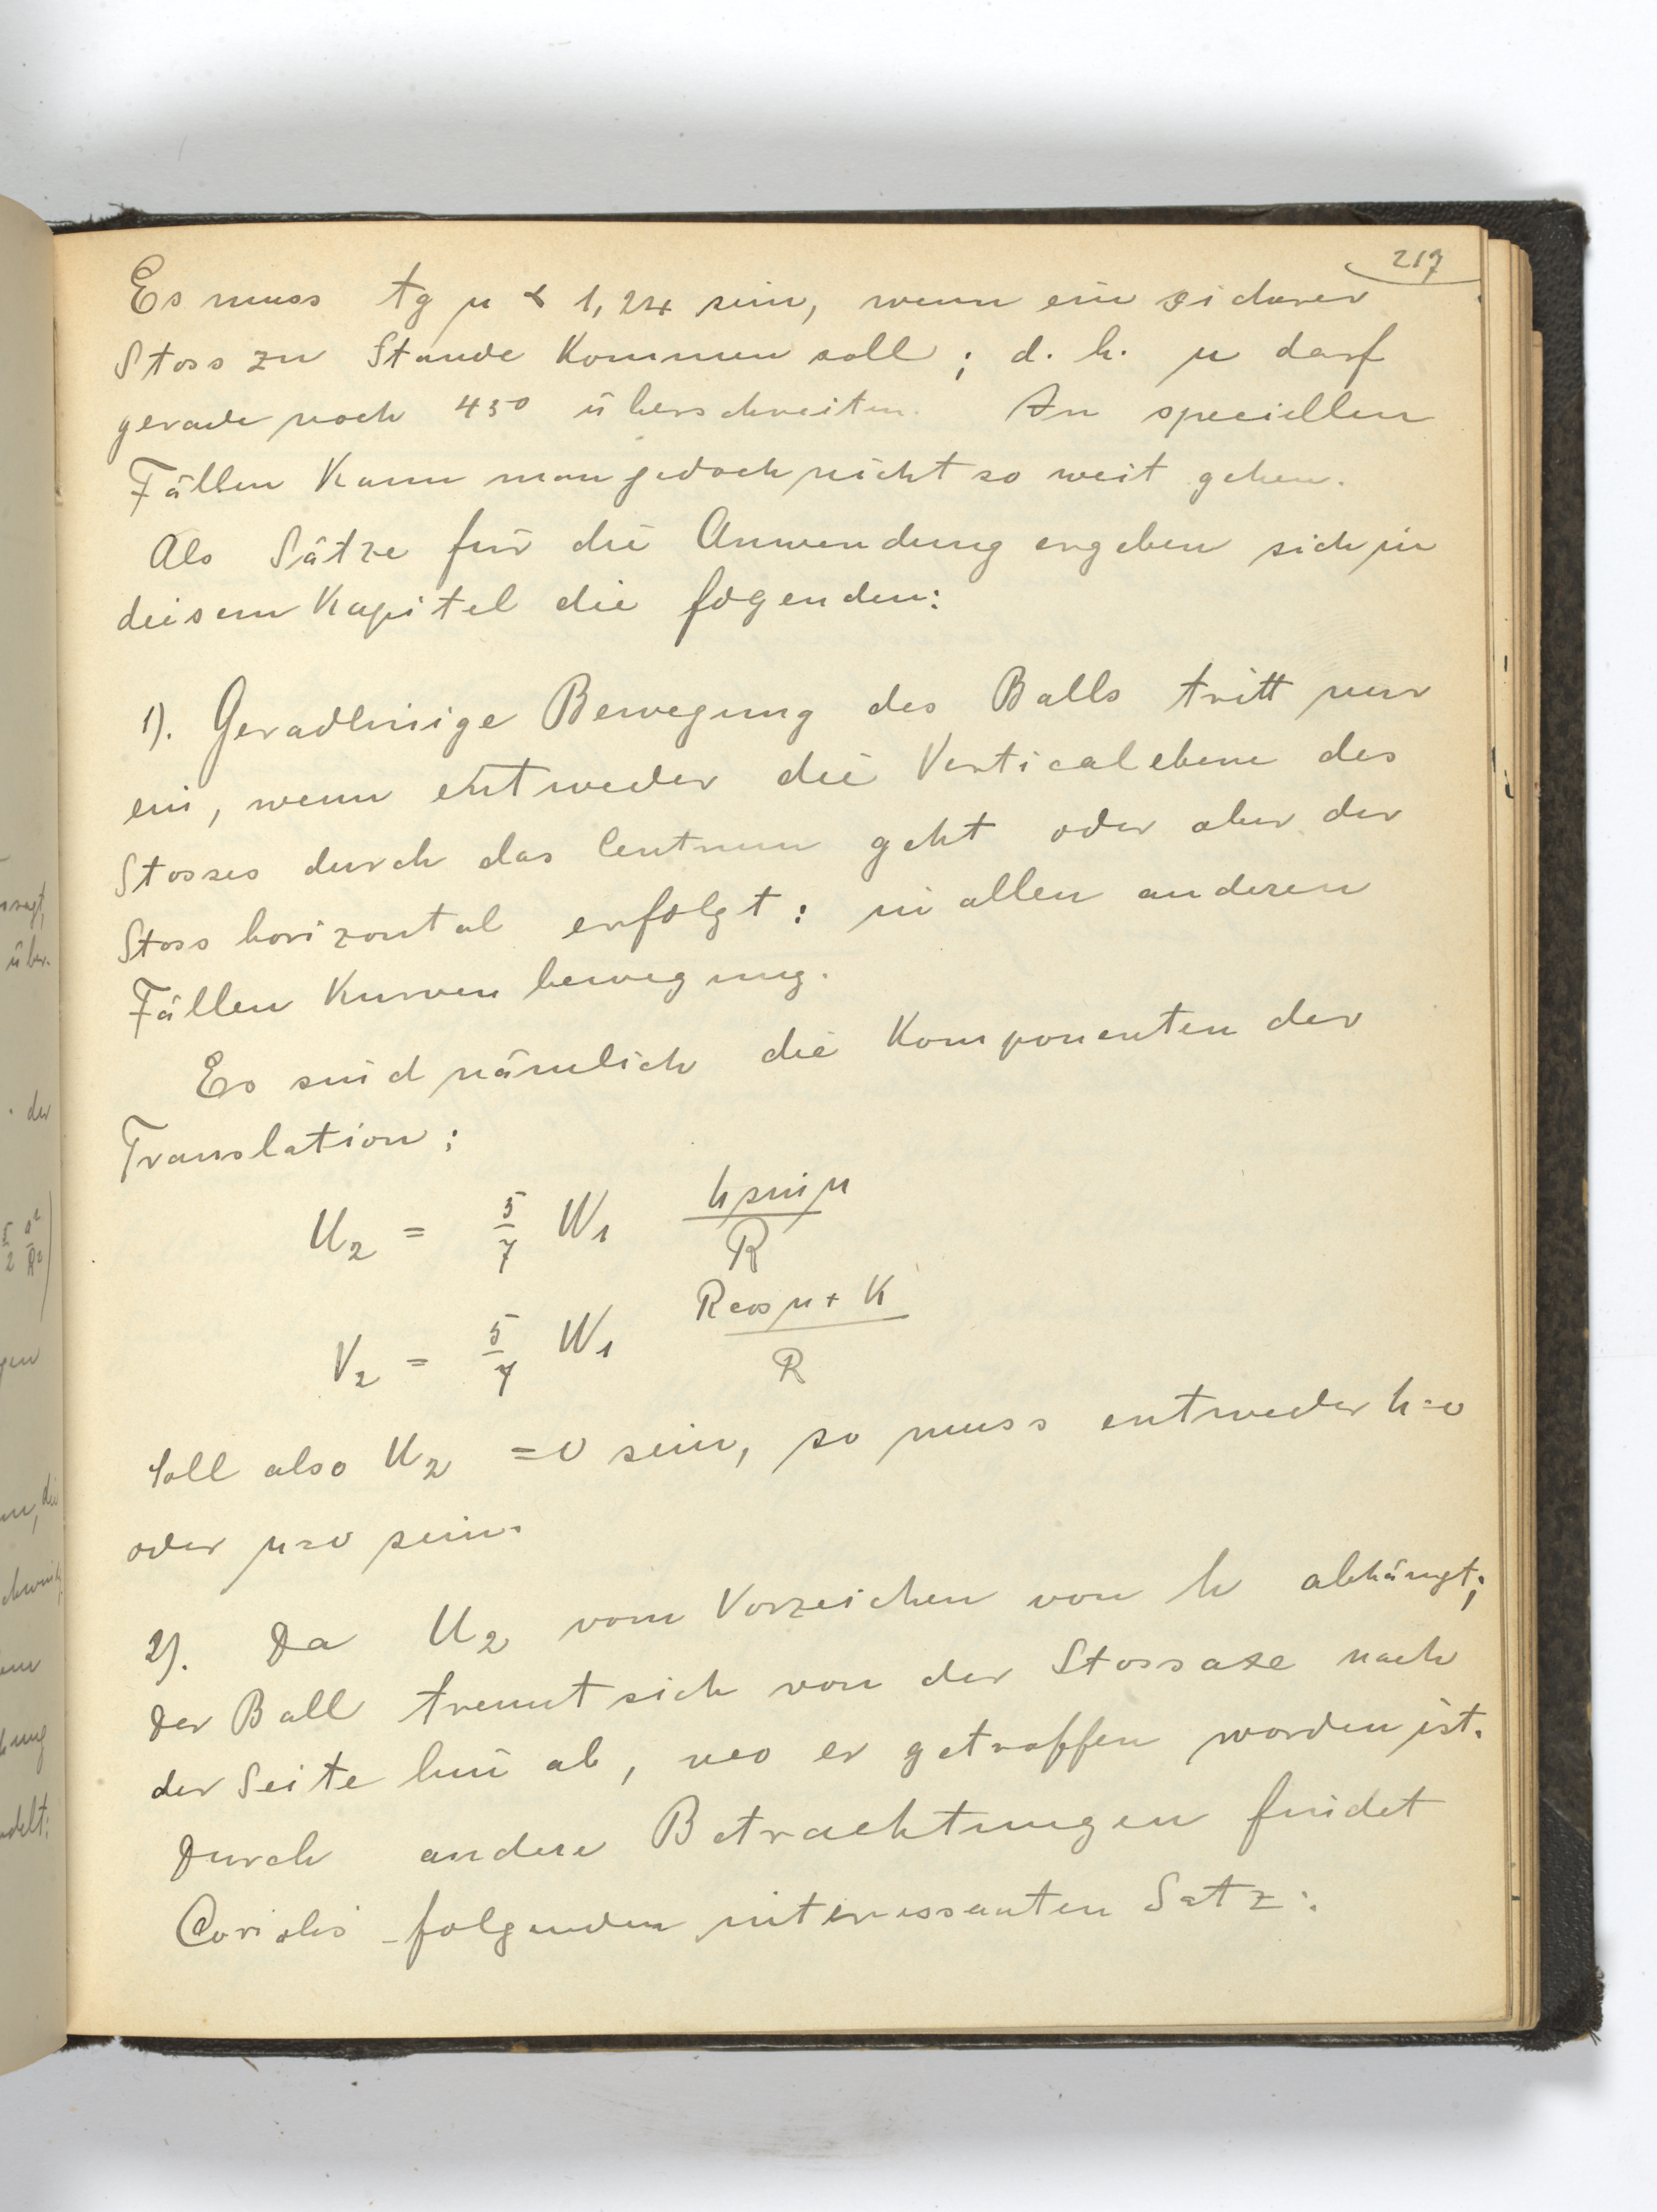 217
Es muss tg μ < 1,24 sein, wenn ein sicherer
Stoss zu Stande kommen soll; d. h. μ darf
gerade noch 45⁰ überschreiten. In speciellen
Fällen kann man jedoch nicht so weit gehen.
Als Sätze für die Anwendung ergeben sich in
diesem Kapitel die folgenden:
1). Geradlinige Bewegung des Balls tritt nur
ein, wenn entweder die Verticalebene des
Stosses durch das Centrum geht oder aber der
Stoss horizontal erfolgt: in allen anderen
Fällen Kurvenbewegung.
Es sind nämlich die Komponenten der
Translation:
U₂ = 5/7 W₁ h sin μ / R
V₂ = 5/7 W₁ R cos μ + k / R
Soll also U₂ = 0 sein, so muss entweder h=0
oder μ=0 sein.
2). Da U₂ vom Vorzeichen von h abhängt;
der Ball trennt sich von der Stossaxe nach
der Seite hin ab, wo er getroffen worden ist.
Durch andere Betrachtungen findet
Coriolis folgenden interessanten Satz: